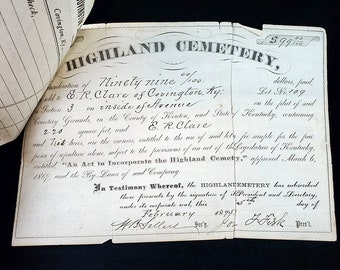 Covington, Ky.
$ 99 00/100
HIGHLAND CEMETERY,
consideration of Ninety nine 00/100 dollars, paid
E. R. Clare of Covington, Ky. Lot No. 109
Section 3 on inside of Avenue
Cemetery Grounds, in the County of Kenton, and State of Kentucky, containing
220 square feet, and E. R. Clare
and his heirs, are the owners, entitled to the use of said lot in fee simple for the pur-
poses of sepulture alone, subject to the provisions of an act of the Legislature of Kentucky,
"An Act to Incorporate the Highland Cemetery," approved March 6,
1867, and the By Laws of said Company.
In Testimony Whereof, the HIGHLAND CEMETERY has subscribed
these presents by the signature of its President and Secretary,
under its corporate seal, this 5th day of
February 1895
Sec'y. Jno. F. Fisk Pres't.